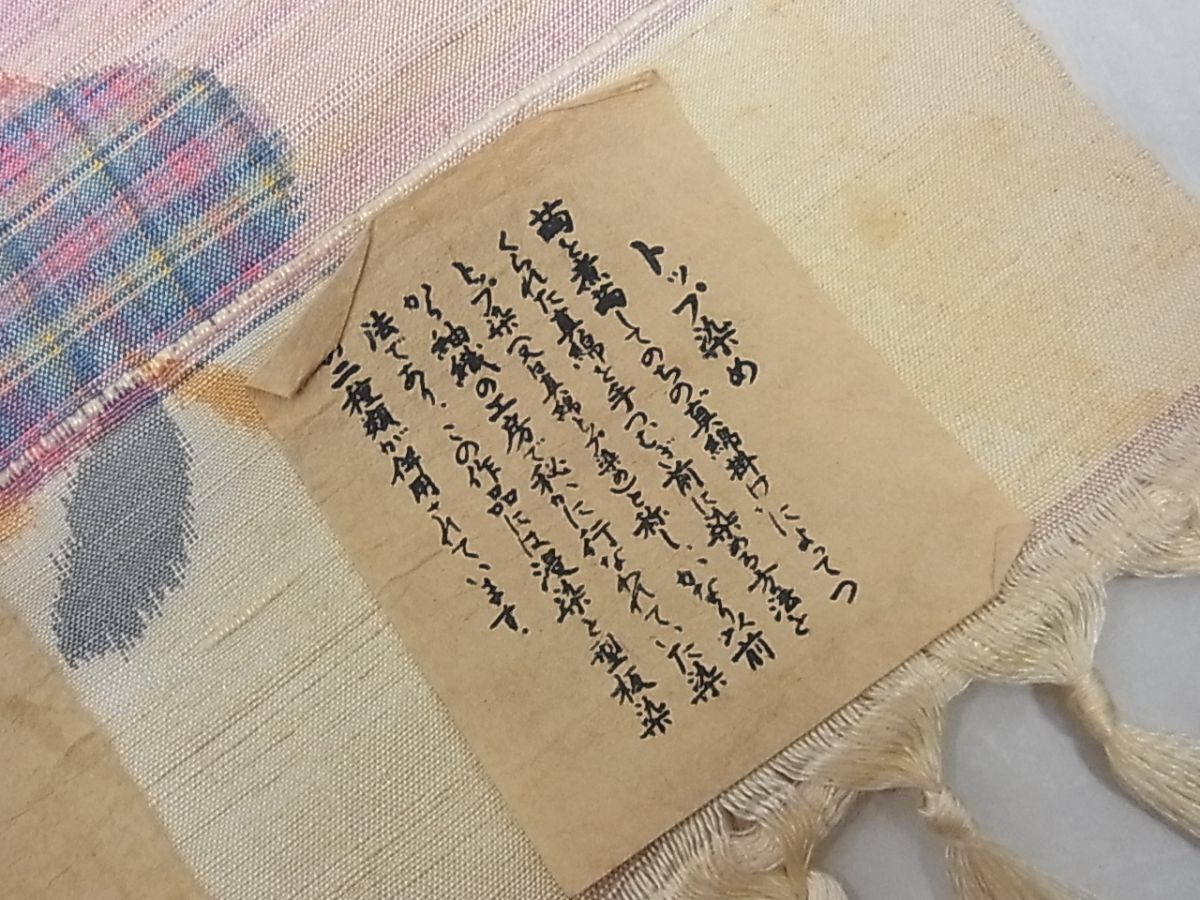 トップ染め
繭を煮繭してのち、真綿掛けによってつ
くられた真綿を手つむぎ前に染める方法を
トップ染(又は真綿トップ染め)と称し、かなり以前
から紬織の工房で秘かに行なわれていた染
法であり、この作品には浸染と型板染
二種類が併用されています。